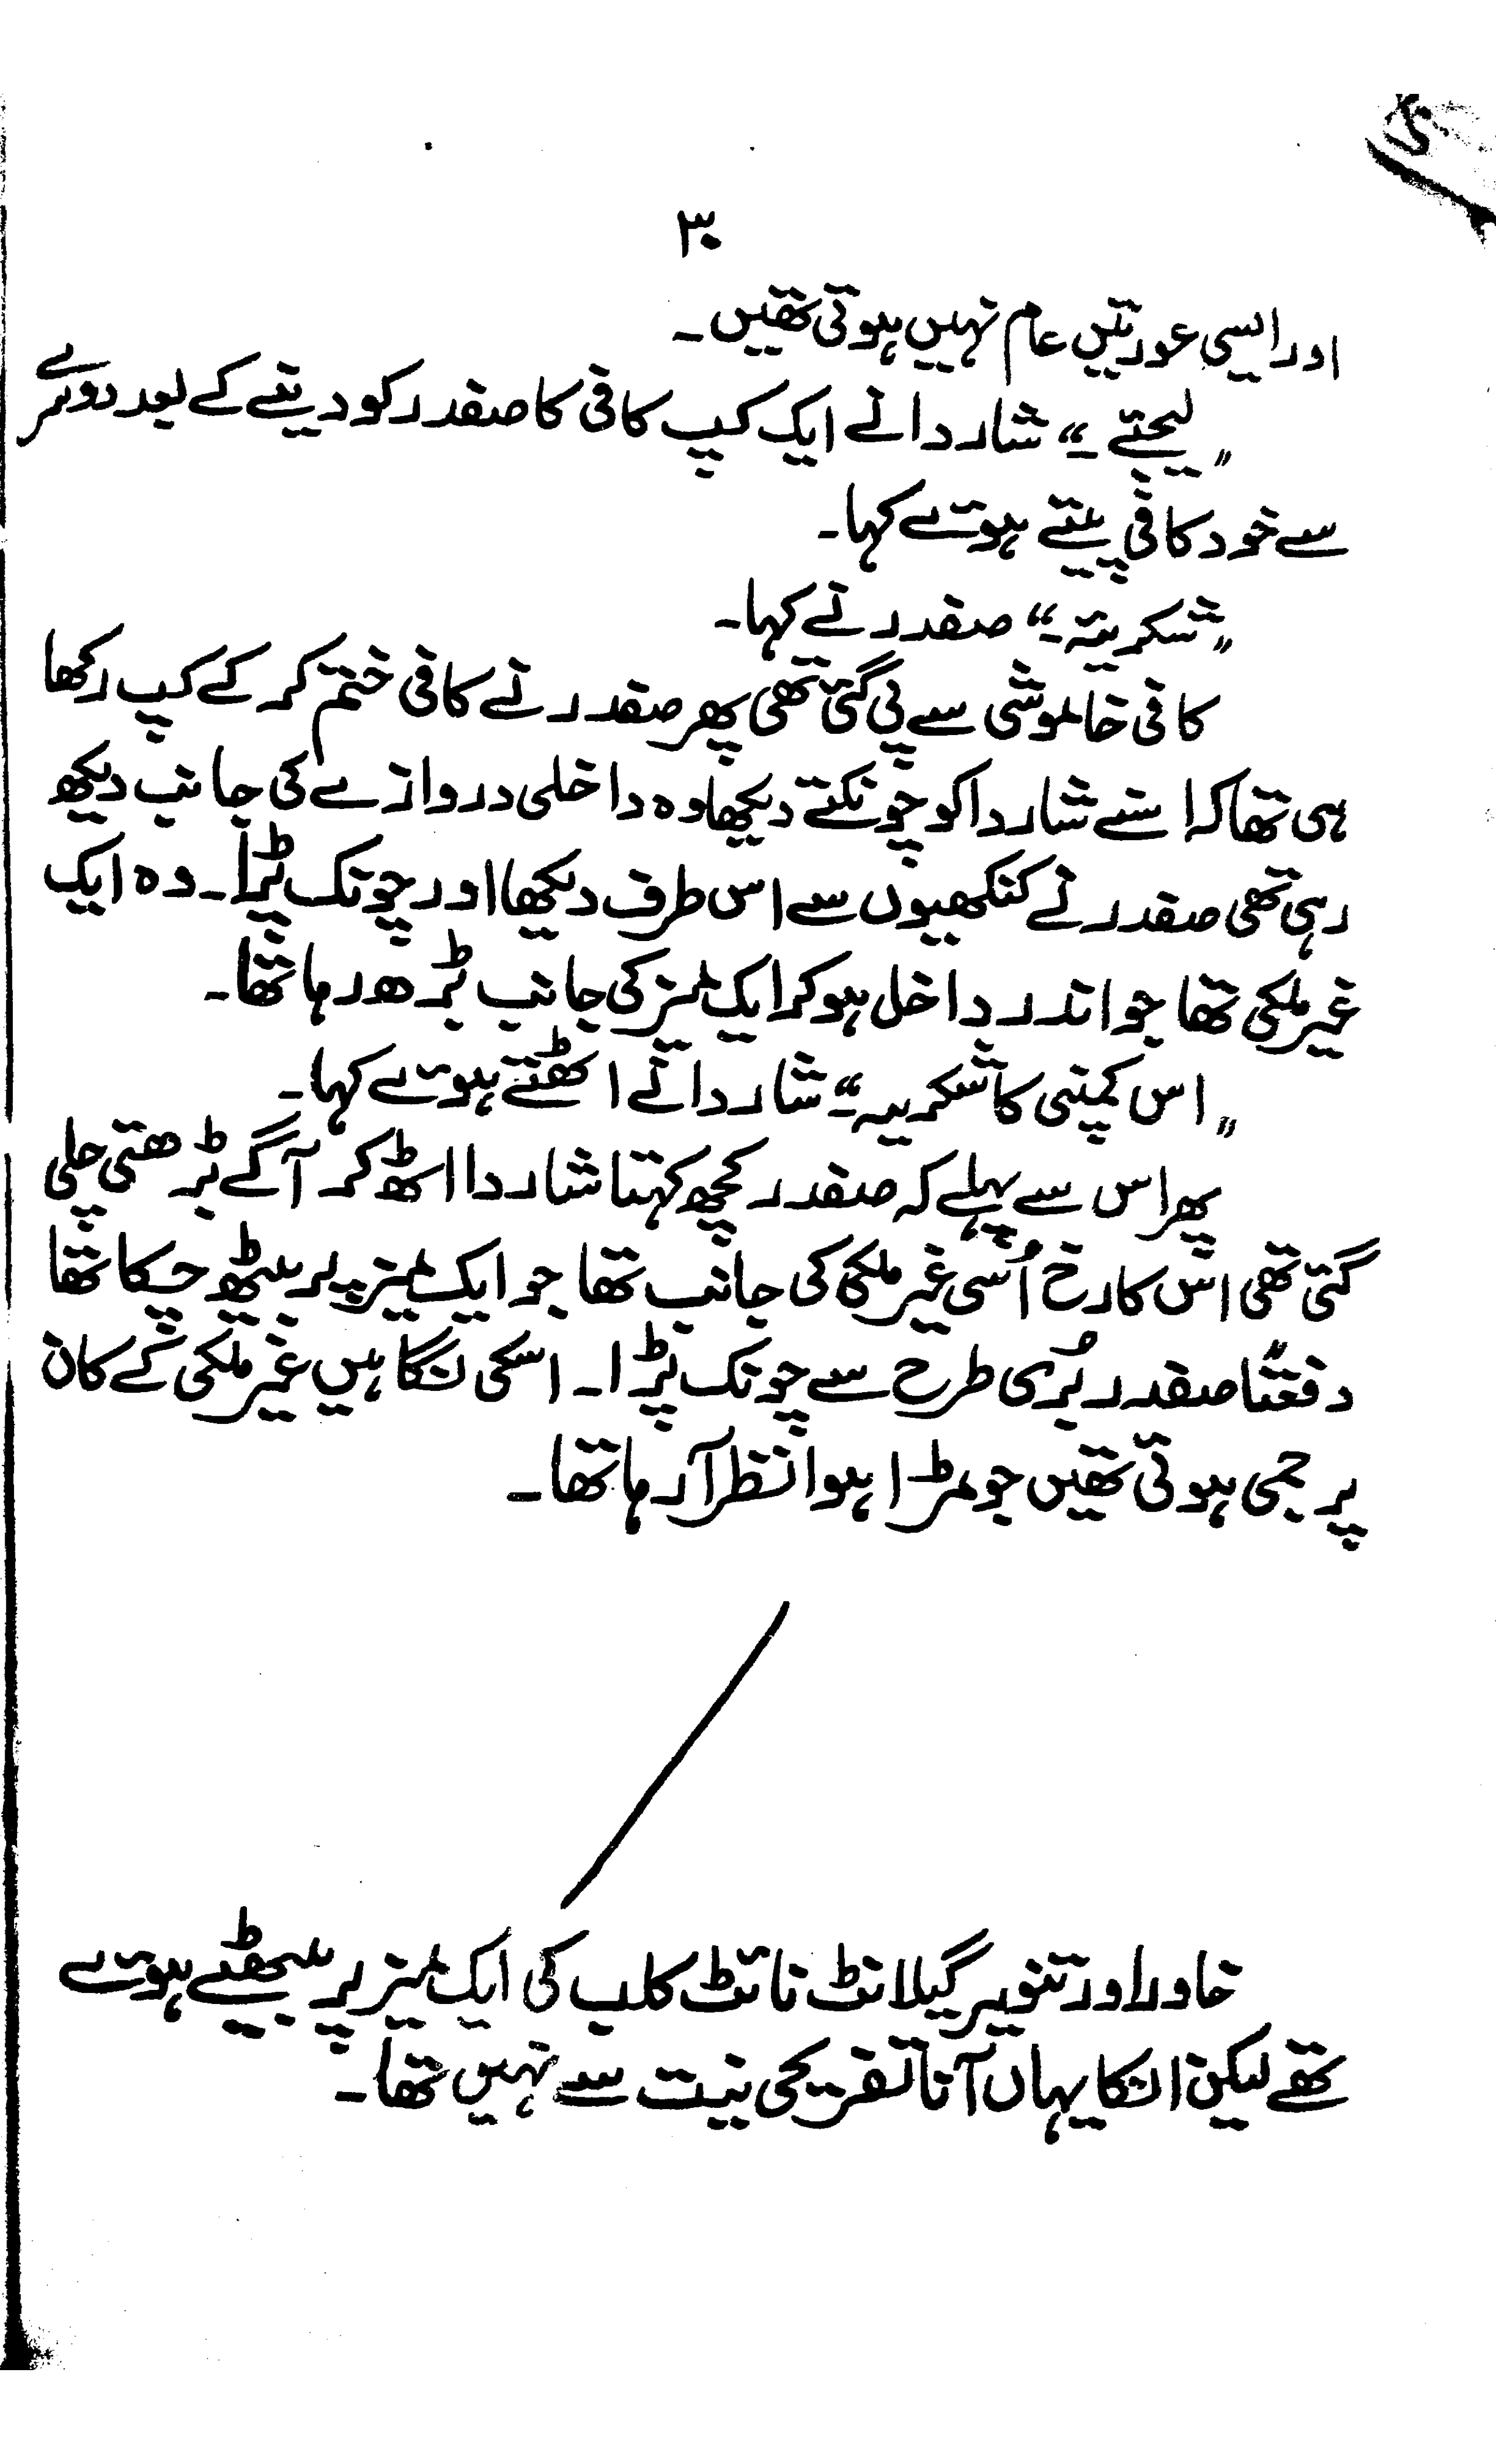 ۳۰
اور ایسی عورتیں عام نہیں ہوتی تھیں۔
"لیجئے۔" شاردا نے ایک کپ کافی کا صفدر کو دینے کے بعد دوسرے
سے خود کافی پیتے ہوئے کہا۔
"شکریہ۔" صفدر نے کہا۔
کافی خاموشی سے پی گئی تھی پھر صفدر نے کافی ختم کر کے کپ رکھا
ہی تھا کہ اسنے شاردا کو چونکتے دیکھا وہ داخلی دروازے کی جانب دیکھ
رہی تھی صفدر نے کنکھیوں سے اس طرف دیکھا اور چونک پڑا۔ وہ ایک
غیر ملکی تھا جو اندر داخل ہو کر ایک میز کی جانب بڑھ رہا تھا۔
"اس کمپنی کا شکریہ۔" شاردا نے اٹھتے ہوئے کہا۔
پھر اس سے پہلے کہ صفدر کچھ کہتا شاردا اٹھ کر آگے بڑھتی چلی
گئی تھی اس کا رخ اُسی غیر ملکی کی جانب تھا جو ایک میز پر بیٹھ چکا تھا
دفعتاً صفدر بُری طرح سے چونک پڑا۔ اسکی نگاہیں غیر ملکی کے کان
پر جمی ہوئی تھیں جو مڑا ہوا نظر آ رہا تھا۔
خاور اور تنویر گیلانٹ نائٹ کلب کی ایک میز پر بیٹھے ہوئے
تھے لیکن انکا یہاں آنا تفریحی نیت سے نہیں تھا۔